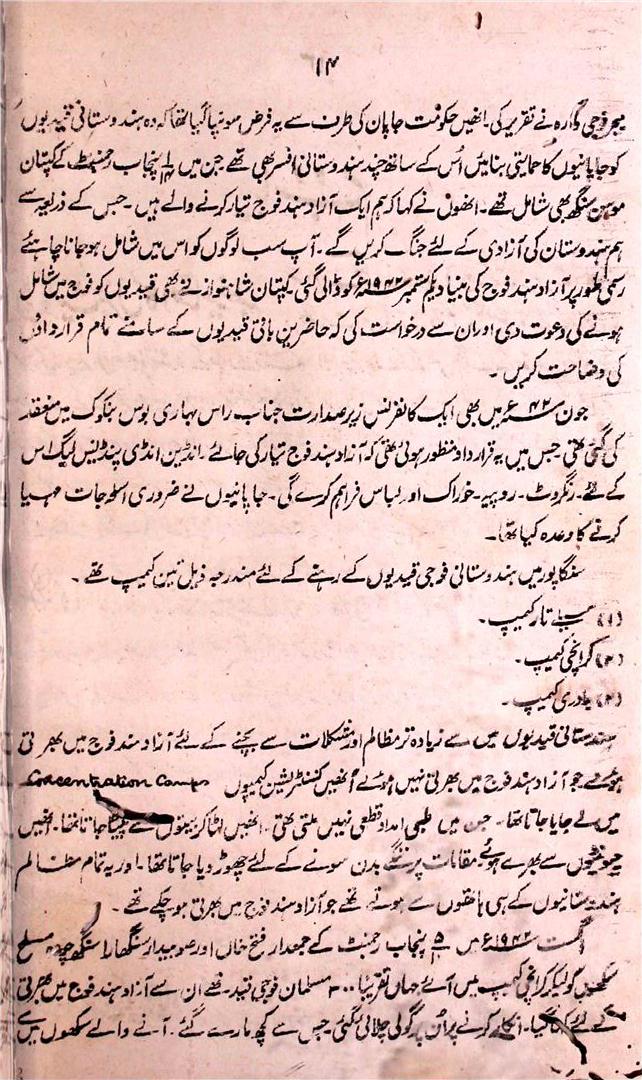 ۱۴
میجر فوجی گوارہ نے تقریر کی۔ انھیں حکومت جاپان کی طرف سے یہ فرض سونپا گیا تھا کہ وہ ہندوستانی قیدیوں
کو جاپانیوں کا حمایتی بنائیں اُس کے ساتھ چند ہندوستانی افسر بھی تھے جن میں پنجاب رجمنٹ کے کپتان
موہن سنگھ بھی شامل تھے۔ انھوں نے کہا کہ ہم ایک آزاد ہند فوج تیار کرنے والے ہیں۔ جس کے ذریعہ سے
ہم ہندوستان کی آزادی کے لئے جنگ کریں گے۔ آپ سب لوگوں کو اس میں شامل ہو جانا چاہئے
رسمی طور پر آزاد ہند فوج کی بنیاد یکم ستمبر ۱۹۴۲ء کو ڈالی گئی۔ کپتان شاہنواز نے بھی قیدیوں کو فوج میں شامل
ہونے کی دعوت دی اور ان سے درخواست کی کہ حاضرین باقی قیدیوں کے سامنے تمام قراردادوں
کی وضاحت کریں۔
جون ۴۲ء میں بھی ایک کانفرنس زیر صدارت جناب راس بہاری بوس بنکوک میں منعقد
کی گئی تھی جس میں یہ قرارداد منظور ہوئی تھی کہ آزاد ہند فوج تیار کی جائے۔ انڈین انڈی پنڈینس لیگ اس
کے لئے۔ رنگروٹ۔ روپیہ۔ خوراک اور لباس فراہم کرے گی۔ جاپانیوں نے ضروری اسلحہ جات مہیا
کرنے کا وعدہ کیا تھا۔
سنگاپور میں ہندوستانی فوجی قیدیوں کے رہنے کے لئے مندرجہ ذیل تین کیمپ تھے۔
(۱) تار کیمپ۔
(۲) کرانچی کیمپ۔
(۳) بادری کیمپ۔
ہندوستانی قیدیوں میں سے زیادہ تر مظالم اور مشکلات سے بچنے کے لئے آزاد ہند فوج میں بھرتی
ہوئے جو آزاد ہند فوج میں بھرتی نہیں ہوئے اُنھیں کنسنٹریشن کیمپوں Concentration Camps
میں لے جایا جاتا تھا۔ جن میں طبی امداد قطعی نہیں ملتی تھی۔ انھیں لٹا کر بینتوں سے پیٹا جاتا تھا۔ انھیں
چیونٹیوں سے بھرے ہوئے مقامات پر ننگے بدن سونے کے لئے چھوڑ دیا جاتا تھا۔ اور یہ تمام مظالم
ہندوستانیوں کے ہی ہاتھوں سے ہوتے تھے جو آزاد ہند فوج میں بھرتی ہو چکے تھے۔
اگست ۱۹۴۲ء میں پنجاب رجمنٹ کے جمعدار فتح خاں اور صوبیدار سنگھارا سنگھ چند مسلح
سکھوں کو لیکر کرانچی کیمپ میں آئے جہاں تقریباً ۳۰۰ مسلمان فوجی قید تھے ان سے آزاد ہند فوج میں بھرتی
کے لئے کہا گیا۔ انکار کرنے پر اُن پر گولی چلائی گئی جس سے کچھ مارے گئے۔ آنے والے سکھوں میں سے